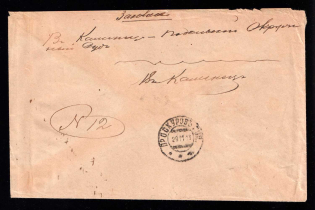 Заказное
Въ Каменецъ-Подольскій Окруж
ный Судъ
въ Каменецъ
N 12
ПРОСКУРОВЪ